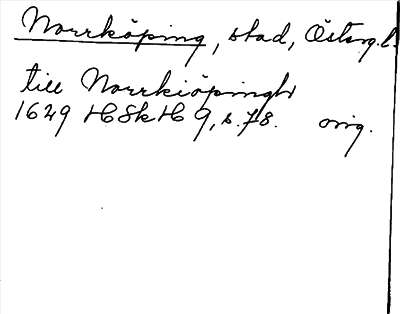 Norrköping, stad, Österg.l.
till Norrkiöpingh
1629 HSkH 9, s. 78. orig.